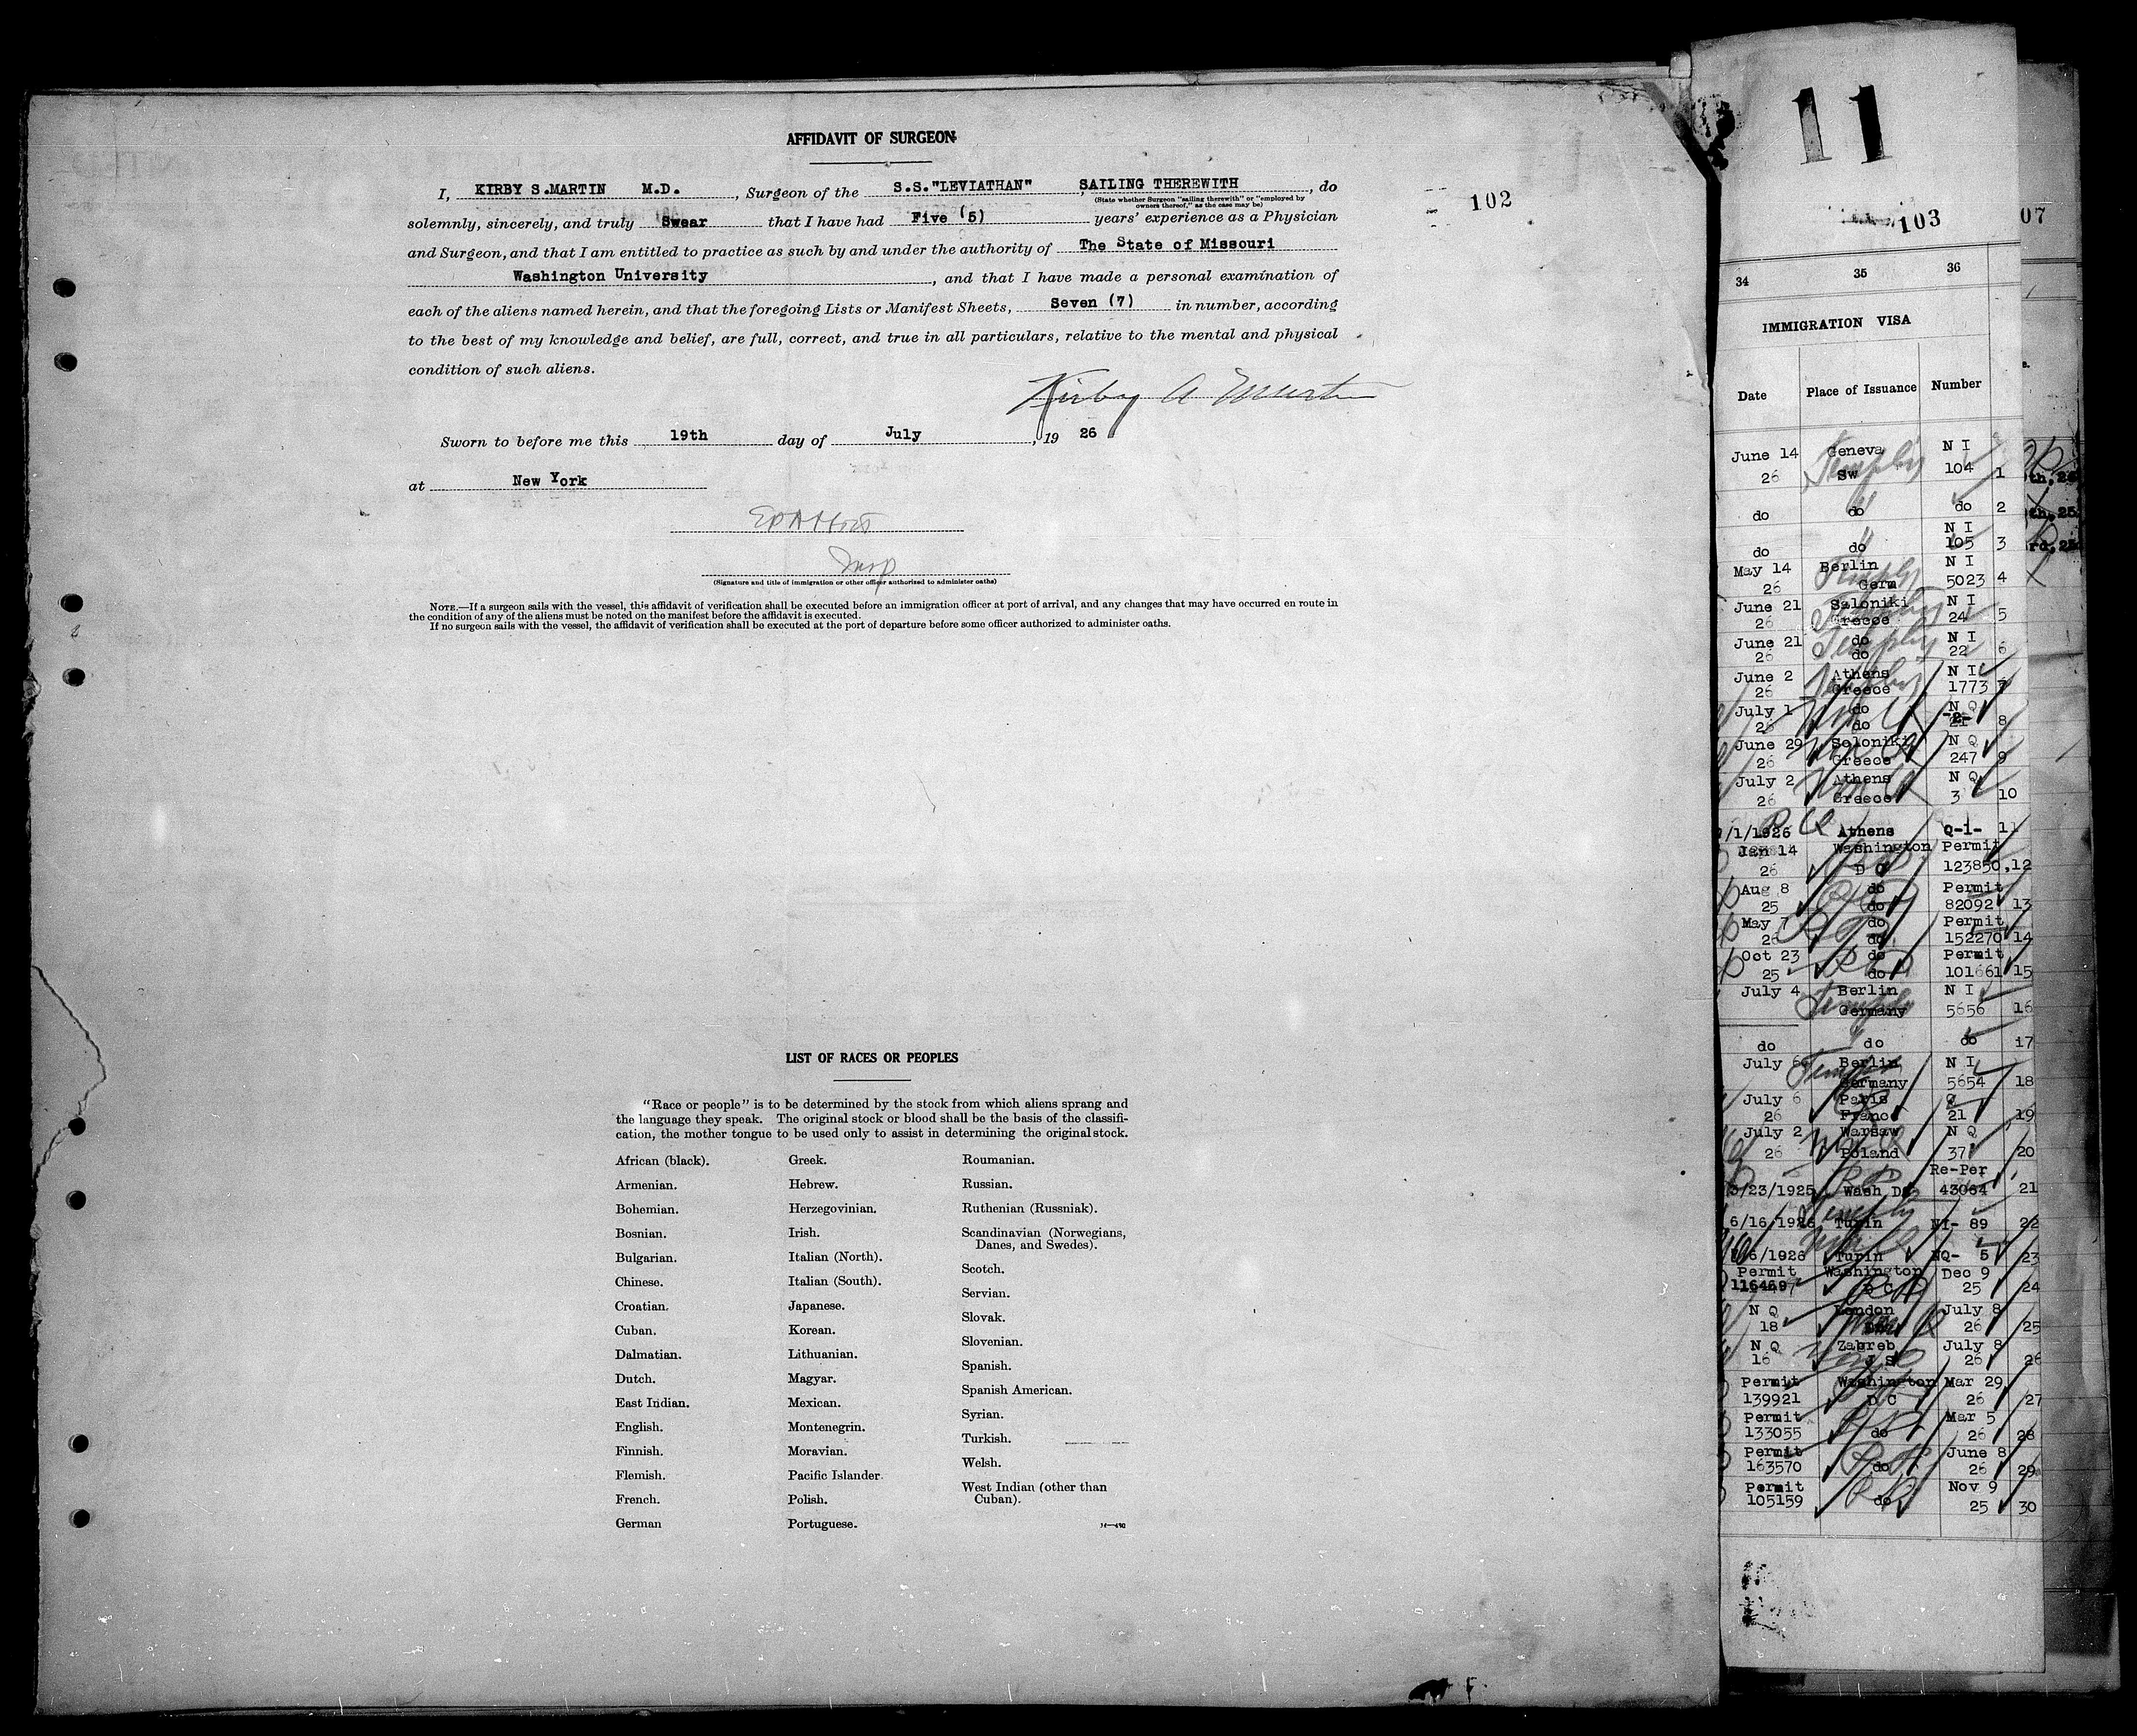 AFFIDAVIT OF SURGEON
I, KIRBY S.MARTIN M.D. , Surgeon of the S.S."LEVIATHAN" SAILING THEREWITH , do
(State whether Surgeon "sailing therewith" or "employed by
owners thereof," as the case may be)
solemnly, sincerely, and truly Swear that I have had Five (5) years' experience as a Physician
and Surgeon, and that I am entitled to practice as such by and under the authority of The State of Missouri
Washington University , and that I have made a personal examination of
each of the aliens named herein, and that the foregoing Lists or Manifest Sheets, Seven (7) in number, according
to the best of my knowledge and belief, are full, correct, and true in all particulars, relative to the mental and physical
condition of such aliens.
Kirby A Martin
Sworn to before me this 19th day of July , 19 26
at New York
Insp
(Signature and title of immigration or other officer authorized to administer oaths)
NOTE.—If a surgeon sails with the vessel, this affidavit of verification shall be executed before an immigration officer at port of arrival, and any changes that may have occurred en route in
the condition of any of the aliens must be noted on the manifest before the affidavit is executed.
If no surgeon sails with the vessel, the affidavit of verification shall be executed at the port of departure before some officer authorized to administer oaths.
102
LIST OF RACES OR PEOPLES
"Race or people" is to be determined by the stock from which aliens sprang and
the language they speak. The original stock or blood shall be the basis of the classifi-
cation, the mother tongue to be used only to assist in determining the original stock.
African (black).
Armenian.
Bohemian.
Bosnian.
Bulgarian.
Chinese.
Croatian.
Cuban.
Dalmatian.
Dutch.
East Indian.
English.
Finnish.
Flemish.
French.
German
Greek.
Hebrew.
Herzegovinian.
Irish.
Italian (North).
Italian (South).
Japanese.
Korean.
Lithuanian.
Magyar.
Mexican.
Montenegrin.
Moravian.
Pacific Islander
Polish.
Portuguese.
Roumanian.
Russian.
Ruthenian (Russniak).
Scandinavian (Norwegians,
Danes, and Swedes).
Scotch.
Servian.
Slovak.
Slovenian.
Spanish.
Spanish American.
Syrian.
Turkish.
Welsh.
West Indian (other than
Cuban).
11
103
07
34 35 36
IMMIGRATION VISA
Date Place of Issuance Number
June 14 Geneva N I
26 Sw 104 1
do do do 2
N I
do do 105 3
May 14 Berlin N I
26 Germ 5023 4
June 21 Saloniki N I
26 Greece 24 5
June 21 do N I
26 do 22 6
June 2 Athens N I
26 Greece 1773 7
July 1 do N Q
26 do 8
June 29 Soloniki N Q
26 Greece 247 9
July 2 Athens N Q
26 Greece 3 10
/1/1926 Athens Q-1- 11
Jan 14 Washington Permit
26 D C 123850, 12
Aug 8 do Permit
25 do 82092 13
May 7 do Permit
26 do 152270 14
Oct 23 do Permit
25 do 101661 15
July 4 Berlin N I
Germany 5656 16
do do do 17
July 6 Berlin N I
Germany 5654 18
July 6 Paris Q
26 France 21 19
July 2 Warsaw N Q
26 Poland 37 20
Re-Per
3/23/1925 Wash DC 43064 21
6/16/1926 Turin NI- 89 22
6/1926 Turin NQ- 5 23
Permit Washington Dec 9
116469 D C 25 24
N Q London July 8
18 26 25
N Q Zagreb July 8
16 J S 26 26
Permit Washington Mar 29
139921 D C 26 27
Permit Mar 5
133055 do 26 28
Permit June 8
163570 do 26 29
Permit Nov 9
105159 do 25 30